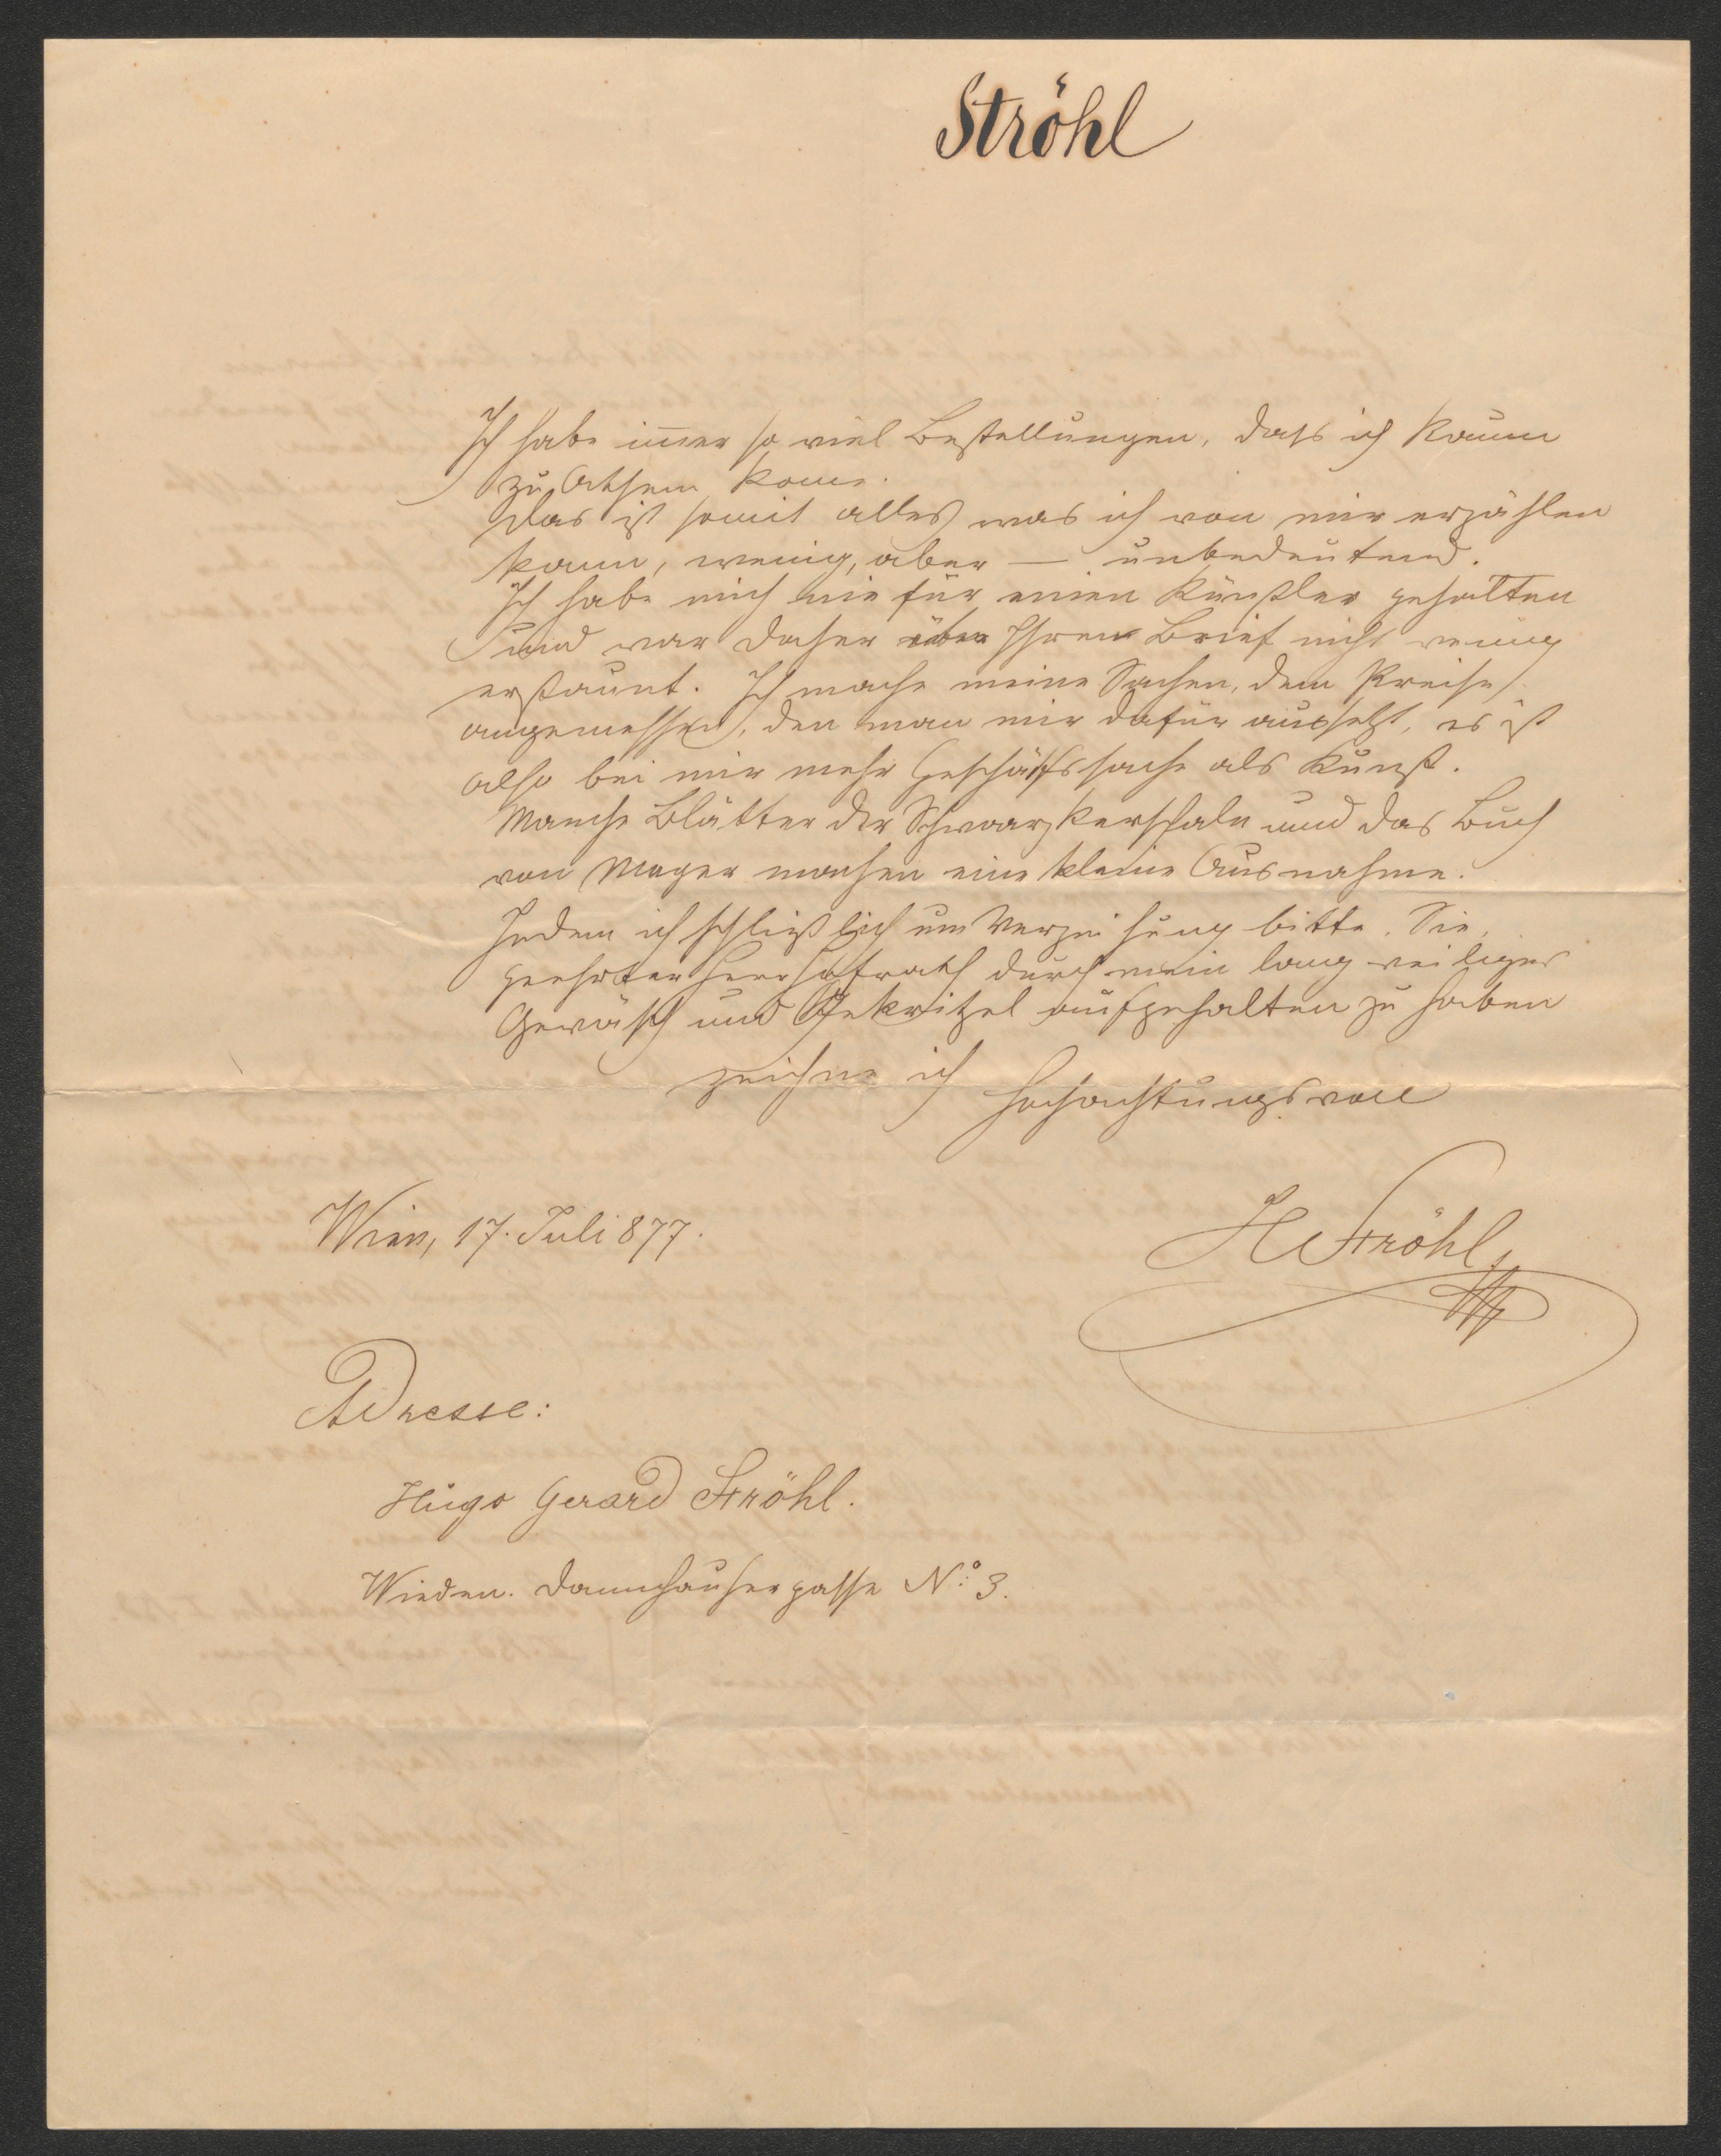 Ströhl
Ich habe im̅er so viel Bestellungen, daß ich kaum
zu Athem kom̅e.
Das ist somit alles was ich von mir erzählen
kann, wenig, aber — unbedeutend.
Ich habe mich nie für einen Künstler gehalten
und war daher über Ihren Brief nicht wenig
erstaunt. Ich mache meine Sachen, dem Preise
angemessen, den man mir dafür aussetzt, es ist
also bei mir mehr Geschäftssache als Kunst.
Manche Blätter der und das Buch
von Mayer machen eine kleine Ausnahme.
Indem ich schließlich um Verzeihung bitte, Sie,
geehrter Herr Hofrath durch mein langweiliges
Gewäsch und Gekritzel aufgehalten zu haben
zeichne ich
hochachtungsvoll
HStröhl
Wien, 17. Juli 877.
Adresse:
Hugo Gerard Ströhl.
Wieden. Dannhausergasse No: 3.